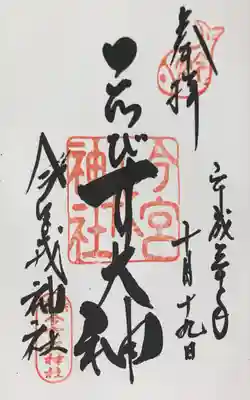 奉拝
平成 年
十月十九日
ゑびす大神
今宮
神社
今宮戎神社